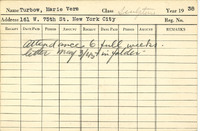 Name Turbow, Marie Vera Class Sculpture Year 19 38
Address 161 W. 75th St. New York City Reg. No.
RECEIPT DATE PAID PERIOD RECEIPT DATE PAID PERIOD RECEIPT DATE PAID PERIOD REMARKS
attendance 6 full weeks.
letter May 3/43 in folder